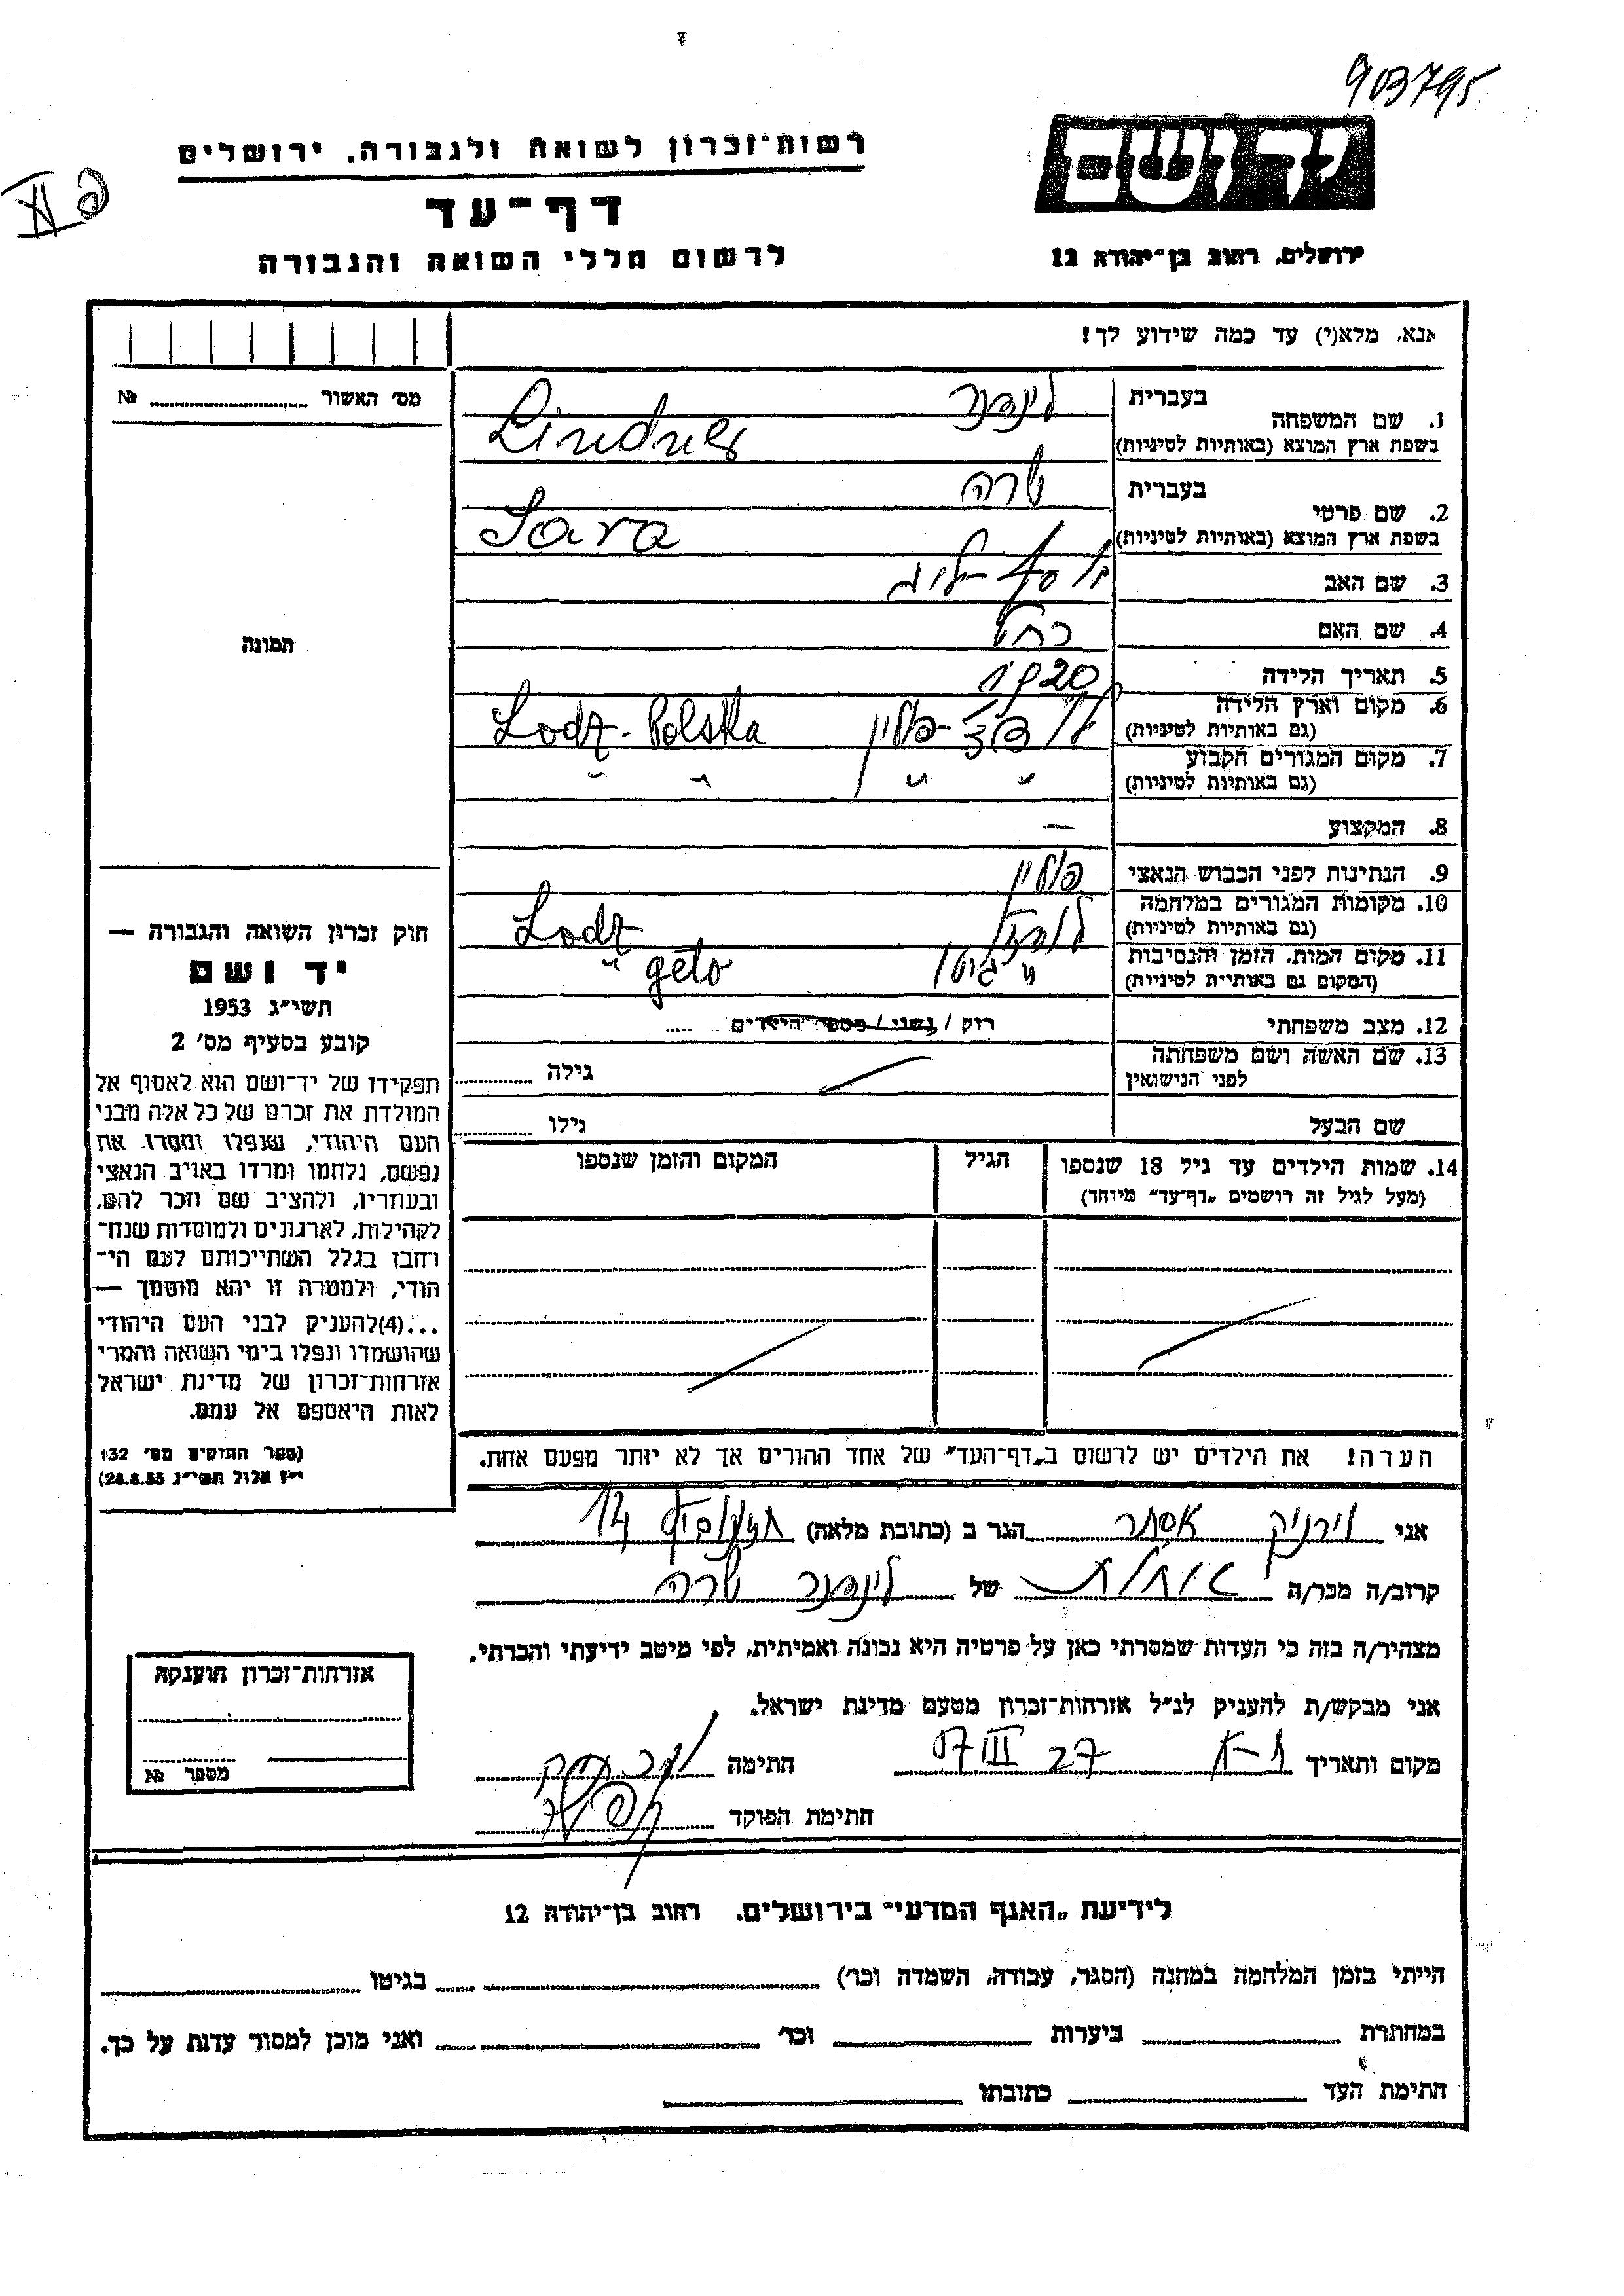 903795
יד ושם
רשות־זכרון לשואה ולגבורה, ירושלים
דף־עד
לרשום חללי השואה והגבורה
ירושלים, רחוב בן־יהודה 12
אנא, מלא(י) עד כמה שידוע לך!
מס' האשור № 
1. שם המשפחה בעברית לינדנר
בשפת ארץ המוצא (באותיות לטיניות) Lindner
2. שם פרטי בעברית שרה
בשפת ארץ המוצא (באותיות לטיניות) Sara
3. שם האב
4. שם האם רחל
5. תאריך הלידה 1920
6. מקום וארץ הלידה (גם באותיות לטיניות) לודז' פולין Lodz - Polska
7. מקום המגורים הקבוע (גם באותיות לטיניות) " " " "
8. המקצוע —
9. הנתינות לפני הכבוש הנאצי פולין
10. מקומות המגורים במלחמה (גם באותיות לטיניות) לודז' Lodz
11. מקום המות, הזמן והנסיבות (המקום גם באותיות לטיניות) " גיטו " geto
12. מצב משפחתי רווק / נשוי / מספר הילדים
13. שם האשה ושם משפחתה לפני הנישואין גילה
שם הבעל גילו
14. שמות הילדים עד גיל 18 שנספו הגיל המקום והזמן שנספו
(מעל לגיל זה רושמים "דף־עד" מיוחד)
הערה! את הילדים יש לרשום ב"דף־העד" של אחד ההורים אך לא יותר מפעם אחת.
תמונה
חוק זכרון השואה והגבורה —
יד ושם
תשי"ג 1953
קובע בסעיף מס' 2
תפקידו של יד־ושם הוא לאסוף אל
המולדת את זכרם של כל אלה מבני
העם היהודי, שנפלו ומסרו את
נפשם, נלחמו ומרדו באויב הנאצי
ובעוזריו, ולהציב שם וזכר להם,
לקהילות, לארגונים ולמוסדות שנח־
רבו בגלל השתייכותם לעם הי־
הודי, ולמטרה זו יהא מוסמך —
...(4)להעניק לבני העם היהודי
שהושמדו ונפלו בימי השואה והמרי
אזרחות־זכרון של מדינת ישראל
לאות היאספם אל עמם.
(ספר החוקים מס' 132
י"ז אלול תשי"ג 28.8.53)
אני אסתר הגר ב (כתובת מלאה) 14
קרוב/ה מכר/ה אחות של לינדנר שרה
מצהיר/ה בזה כי העדות שמסרתי כאן על פרטיה היא נכונה ואמיתית, לפי מיטב ידיעתי והכרתי.
אני מבקש/ת להעניק לנ"ל אזרחות־זכרון מטעם מדינת ישראל.
מקום ותאריך ת-א 27 III חתימה
חתימת הפוקד
אזרחות־זכרון הוענקה
מספר №
לידיעת "האגף המדעי" בירושלים, רחוב בן־יהודה 12
הייתי בזמן המלחמה במחנה (הסגר, עבודה, השמדה וכו') בגיטו
במחתרת ביערות וכו' ואני מוכן למסור עדות על כך.
חתימת העד כתובתו